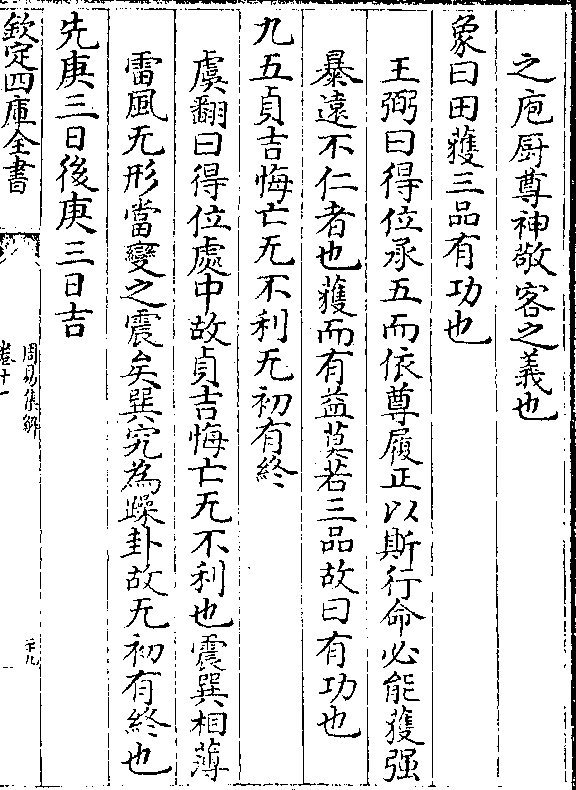 之庖厨尊神敬客之義也
象曰田獲三品有功也
王弼曰得位承五而依尊履正以斯行命必能獲强
暴遠不仁者也獲而有益莫若三品故曰有功也
九五貞吉悔亡无不利无初有終
虞翻曰得位處中故貞吉悔亡无不利也震巽相薄
雷風无形當變之震矣巽究為躁卦故无初有終也
先庚三日後庚三日吉
欽定四庫全書
周易集解
卷十一